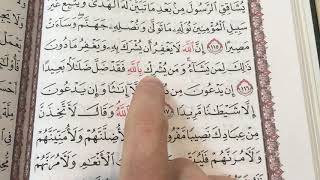 يُشَاقِقِ ٱلرَّسُولَ مِنۢ بَعۡدِ مَا تَبَيَّنَ لَهُ ٱلۡهُدَىٰ وَيَتَّبِعۡ غَيۡرَ
سَبِيلِ ٱلۡمُؤۡمِنِينَ نُوَلِّهِۦ مَا تَوَلَّىٰ وَنُصۡلِهِۦ جَهَنَّمَۖ وَسَآءَتۡ
مَصِيرًا ١١٥ إِنَّ ٱللَّهَ لَا يَغۡفِرُ أَن يُشۡرَكَ بِهِۦ وَيَغۡفِرُ مَا دُونَ
ذَٰلِكَ لِمَن يَشَآءُۚ وَمَن يُشۡرِكۡ بِٱللَّهِ فَقَدۡ ضَلَّ ضَلَٰلَۢا بَعِيدًا
١١٦ إِن يَدۡعُونَ مِن دُونِهِۦٓ إِلَّآ إِنَٰثٗا وَإِن يَدۡعُونَ
إِلَّا شَيۡطَٰنٗا مَّرِيدٗا ١١٧ ٱللَّهُۘ وَقَالَ لَأَتَّخِذَنَّ
مِنۡ عِبَادِكَ نَصِيبٗا وَلَأُضِلَّنَّهُمۡ وَلَأُمَنِّيَنَّهُمۡ
وَلَأٓمُرَنَّهُمۡ فَلَيُبَتِّكُنَّ ٱلۡأَنۡعَٰمِ وَلَأٓمُرَنَّهُمۡ